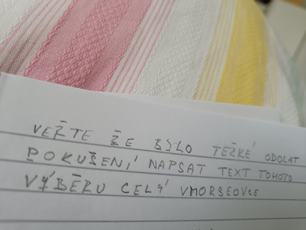 VEŘTE ŽE BYLO TĚŽKÉ ODOLAT
POKUŠENÍ NAPSAT TEXT TOHOTO
VÝBĚRU CELÝ VMORSEOVCE